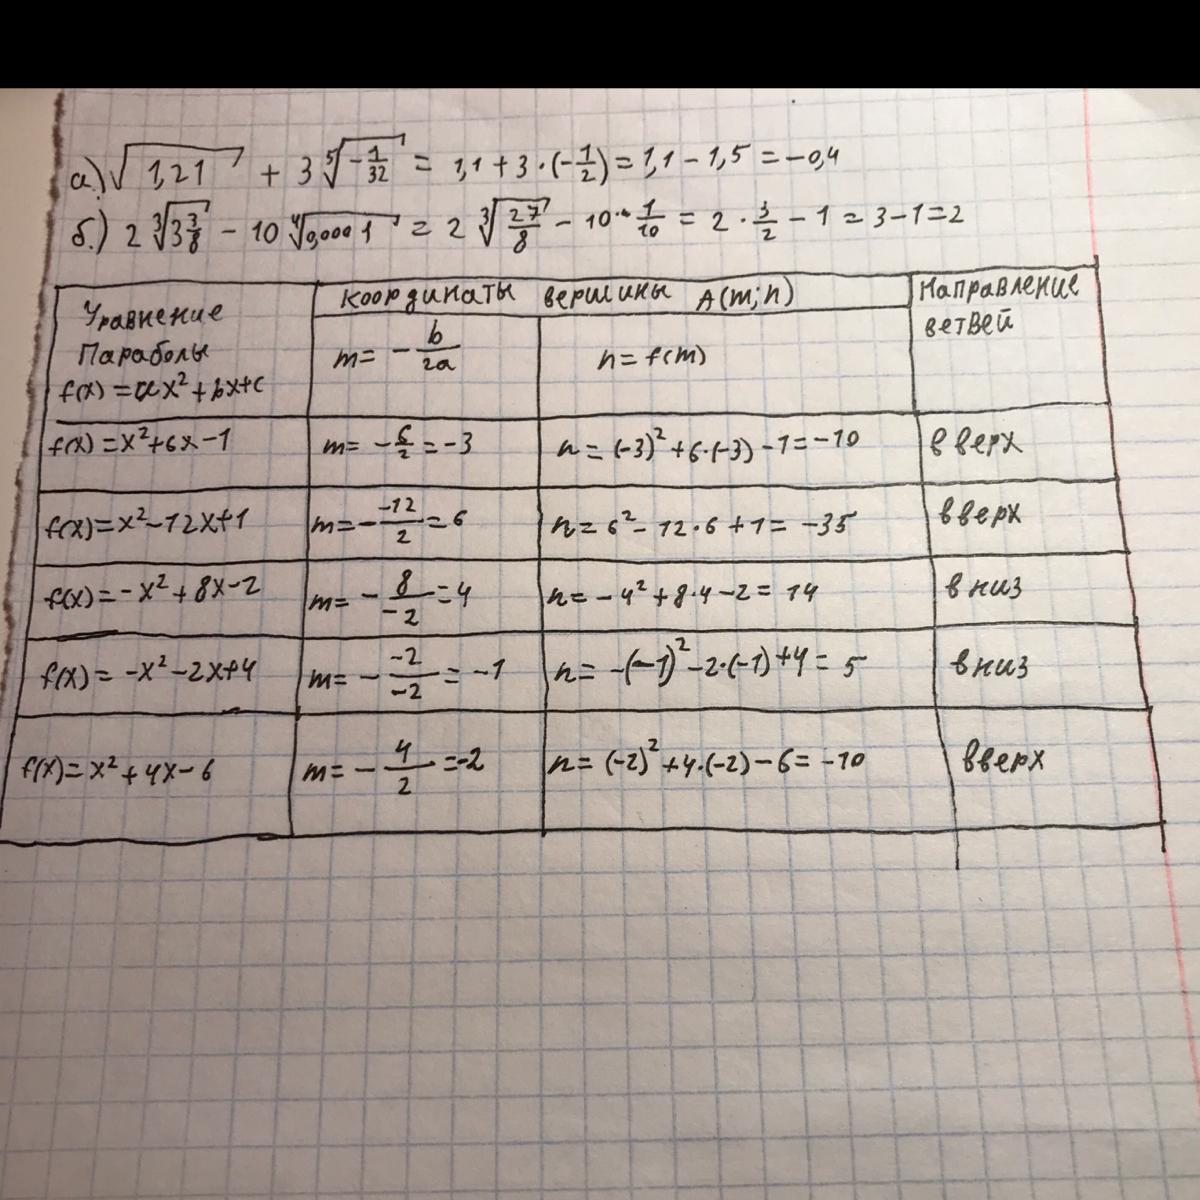 а.) √1,21 + 3 ⁵√(-1/32) = 1,1 + 3 · (-1/2) = 1,1 - 1,5 = -0,4
б.) 2 ³√(3 3/8) - 10 ⁴√0,0001 = 2 ³√(27/8) - 10 · 1/10 = 2 · 3/2 - 1 = 3 - 1 = 2
Уравнение
Параболы
f(x) = ax² + bx + c
координаты вершины A(m; n)
m = - b/2a
n = f(m)
Направление
ветвей
f(x) = x² + 6x - 1
m = - 6/2 = -3
n = (-3)² + 6·(-3) - 1 = -10
вверх
f(x) = x² - 12x + 1
m = - -12/2 = 6
n = 6² - 12·6 + 1 = -35
вверх
f(x) = -x² + 8x - 2
m = - 8/-2 = 4
n = -4² + 8·4 - 2 = 14
вниз
f(x) = -x² - 2x + 4
m = - -2/-2 = -1
n = -(-1)² - 2·(-1) + 4 = 5
вниз
f(x) = x² + 4x - 6
m = - 4/2 = -2
n = (-2)² + 4·(-2) - 6 = -10
вверх